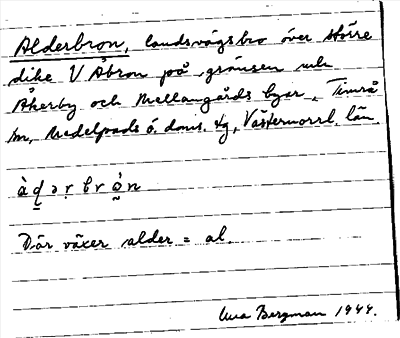 Alderbron, landsvägsbro över större
dike V Åbron på gränsen mln
Åkerby och Mellangårds byar, Timrå
sn, Medelpads ö. doms. tg, Västernorrl. län.
Där växer alder = al.
Bergman 1944.